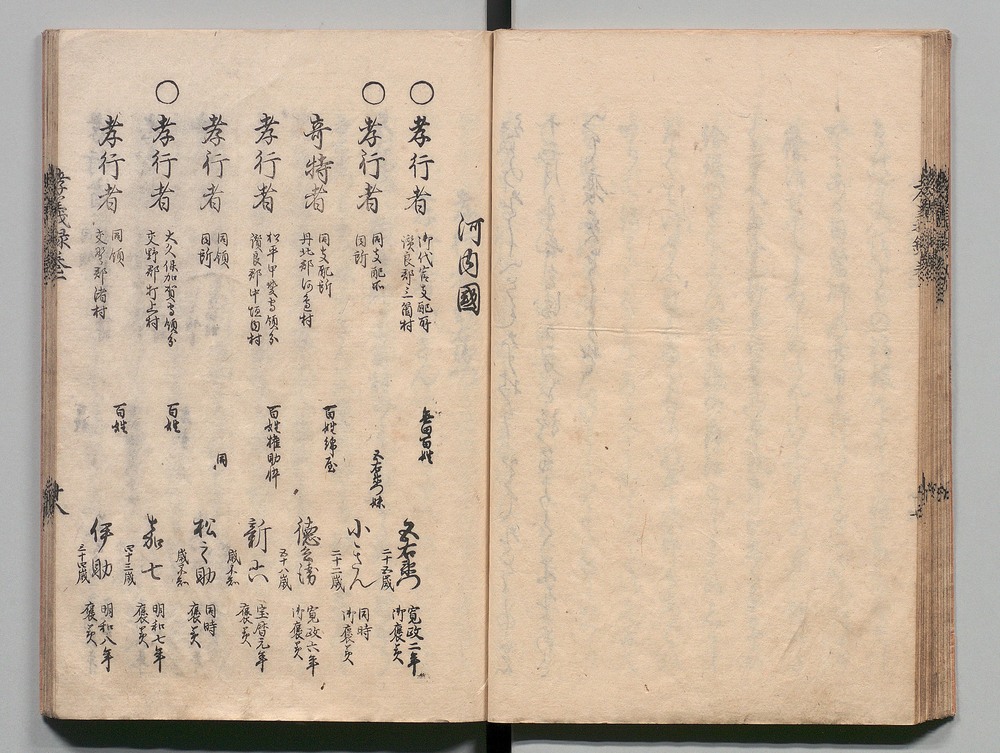 河内國
○孝行者
御代官支配所
讃良郡三箇村
無田百姓
五右衛門
二十五歳
寛政二年
御褒美
○孝行者
同支配所
同所
五右衛門妹
小さん
二十二歳
同時
御褒美
奇特者
同支配所
丹北郡河邉村
百姓綿屋
徳兵衛
五十八歳
寛政六年
御褒美
孝行者
松平甲斐守領分
讃良郡中垣内村
百姓権助忰
新六
歳不知
宝暦元年
褒美
孝行者
同領
同所
同
松之助
歳不知
同時
褒美
○孝行者
大久保加賀守領分
交野郡打上村
百姓
嘉七
四十三歳
明和七年
褒美
孝行者
同領
交野郡渚村
百姓
伊助
三十四歳
明和八年
褒美
孝義録巻二